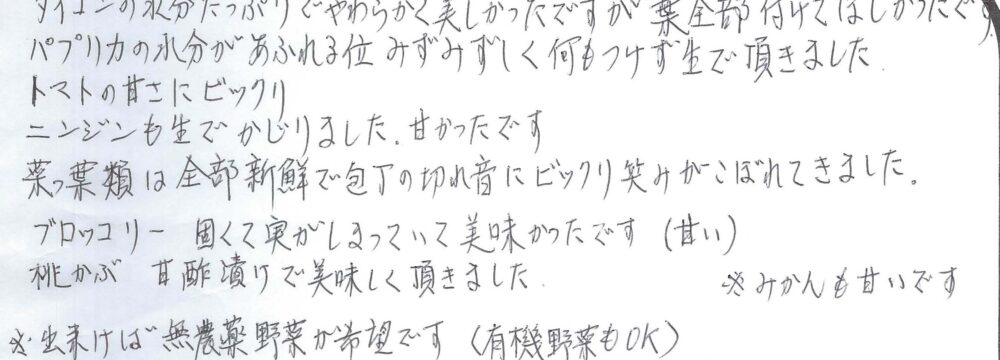 ダイコンの水分たっぷりでやわらかく美しかったですが 葉全部付けてほしかったです
パプリカの水分があふれる位 みずみずしく何もつけず生で頂きました.
トマトの甘さにビックリ
ニンジンも生でかじりました.甘かったです
菜っ葉類は全部新鮮で包丁の切れ音にビックリ笑みがこぼれてきました。
ブロッコリー 固くて実がしまっていて美味かったです(甘い)
桃かぶ 甘酢漬けで美味しく頂きました
※みかんも甘いです
※出来けば無農薬野菜が希望です(有機野菜もOK)